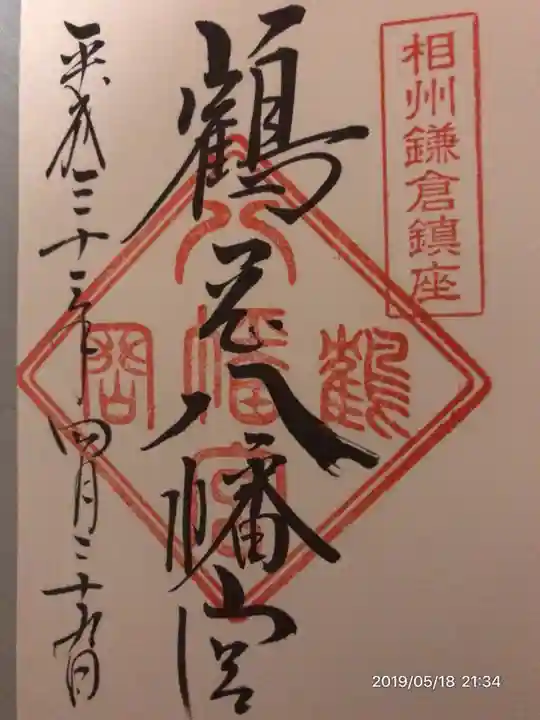 相州鎌倉鎮座
鶴岡八幡宮
鶴岡八幡宮
平成三十一年四月二十九日
2019/05/18 21:34